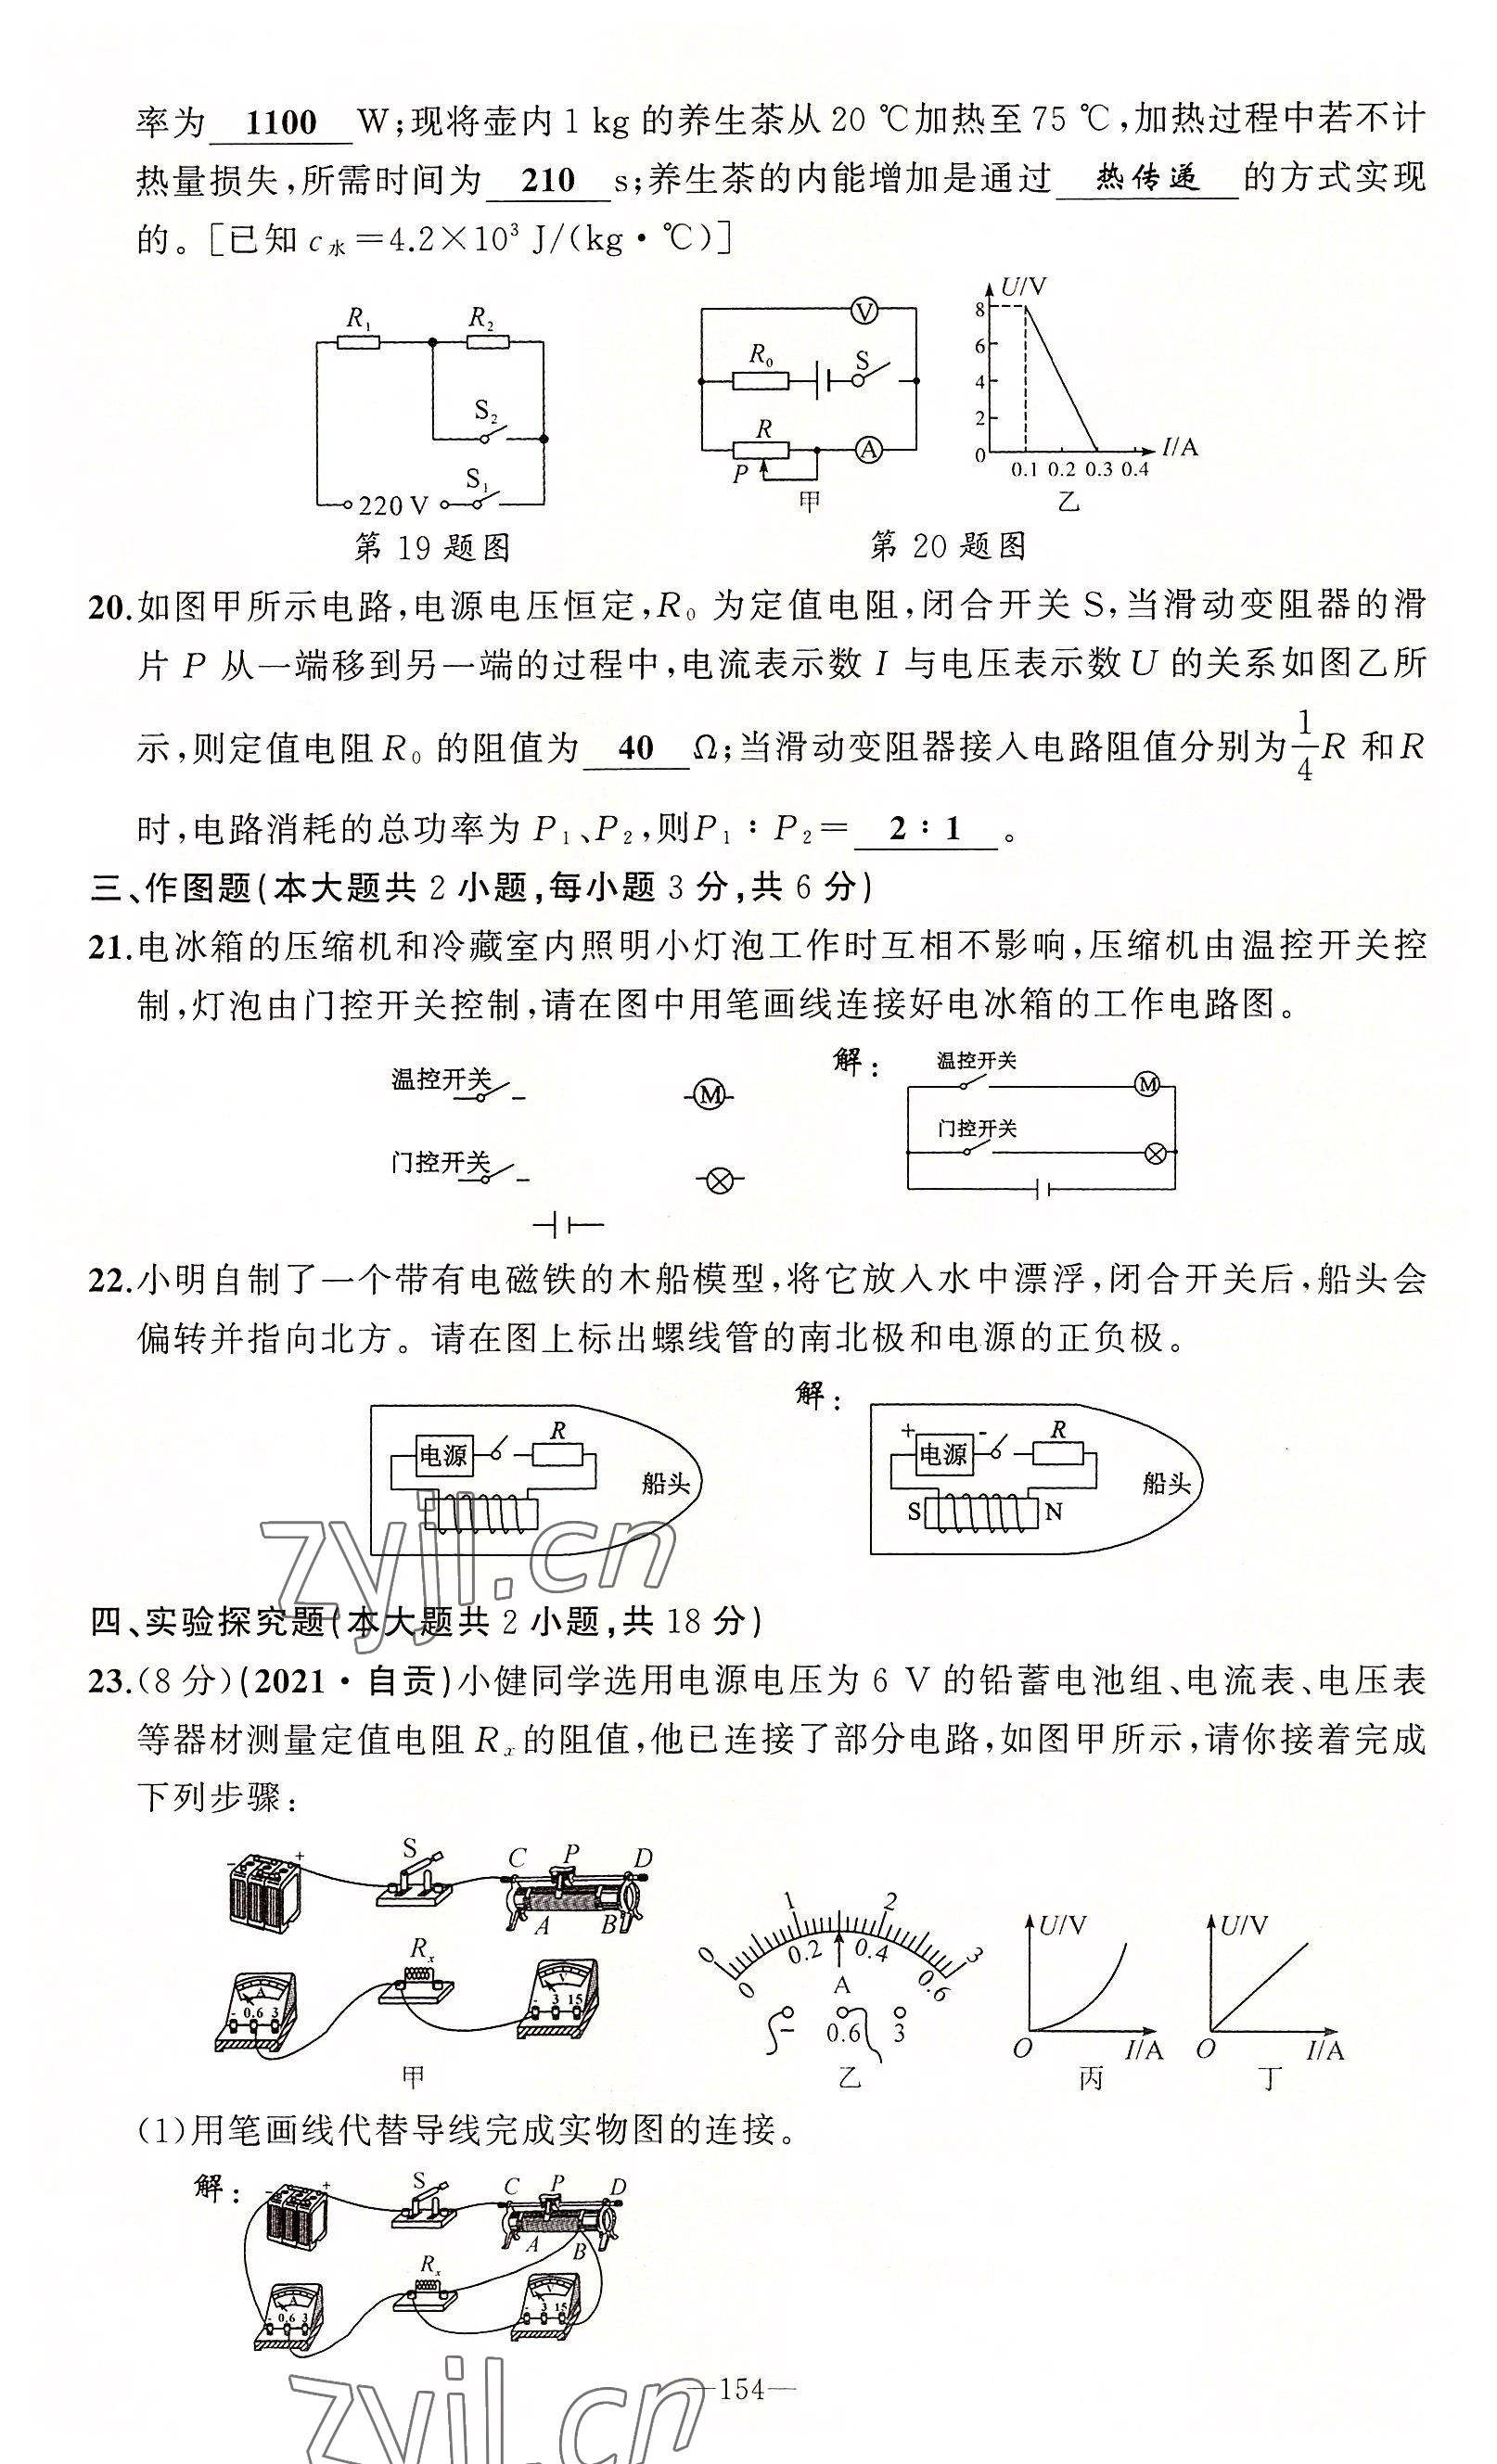 率为 1100 W;现将壶内 1 kg 的养生茶从 20 ℃加热至 75 ℃,加热过程中若不计
热量损失,所需时间为 210 s;养生茶的内能增加是通过 热传递 的方式实现
的。[已知 c水=4.2×10³ J/(kg·℃)]
R₁ R₂
S₂
S₁
220 V
第 19 题图
V
R₀ S
R
P A
甲
U/V
8
6
4
2
0
0.1 0.2 0.3 0.4
I/A
乙
第 20 题图
20.如图甲所示电路,电源电压恒定,R₀ 为定值电阻,闭合开关 S,当滑动变阻器的滑
片 P 从一端移到另一端的过程中,电流表示数 I 与电压表示数 U 的关系如图乙所
示,则定值电阻 R₀ 的阻值为 40 Ω;当滑动变阻器接入电路阻值分别为 1/4 R 和 R
时,电路消耗的总功率为 P₁、P₂,则 P₁∶P₂= 2∶1 。
三、作图题(本大题共 2 小题,每小题 3 分,共 6 分)
21.电冰箱的压缩机和冷藏室内照明小灯泡工作时互相不影响,压缩机由温控开关控
制,灯泡由门控开关控制,请在图中用笔画线连接好电冰箱的工作电路图。
温控开关 M
门控开关
解:
温控开关 M
门控开关
22.小明自制了一个带有电磁铁的木船模型,将它放入水中漂浮,闭合开关后,船头会
偏转并指向北方。请在图上标出螺线管的南北极和电源的正负极。
电源 R 船头
解:
+ 电源 - R 船头
S N
四、实验探究题(本大题共 2 小题,共 18 分)
23.(8 分)(2021·自贡)小健同学选用电源电压为 6 V 的铅蓄电池组、电流表、电压表
等器材测量定值电阻 Rₓ 的阻值,他已连接了部分电路,如图甲所示,请你接着完成
下列步骤:
- + S C P D
A B
Rₓ
A
- 0.6 3
V
- 3 15
甲
0 1 2 3
0 0.2 0.4 0.6
A
- 0.6 3
乙
U/V
O I/A
丙
U/V
O I/A
丁
(1)用笔画线代替导线完成实物图的连接。
解:
- + S C P D
A B
Rₓ
A
- 0.6 3
V
- 3 15
—154—
zyjl.cn
zyjl.cn